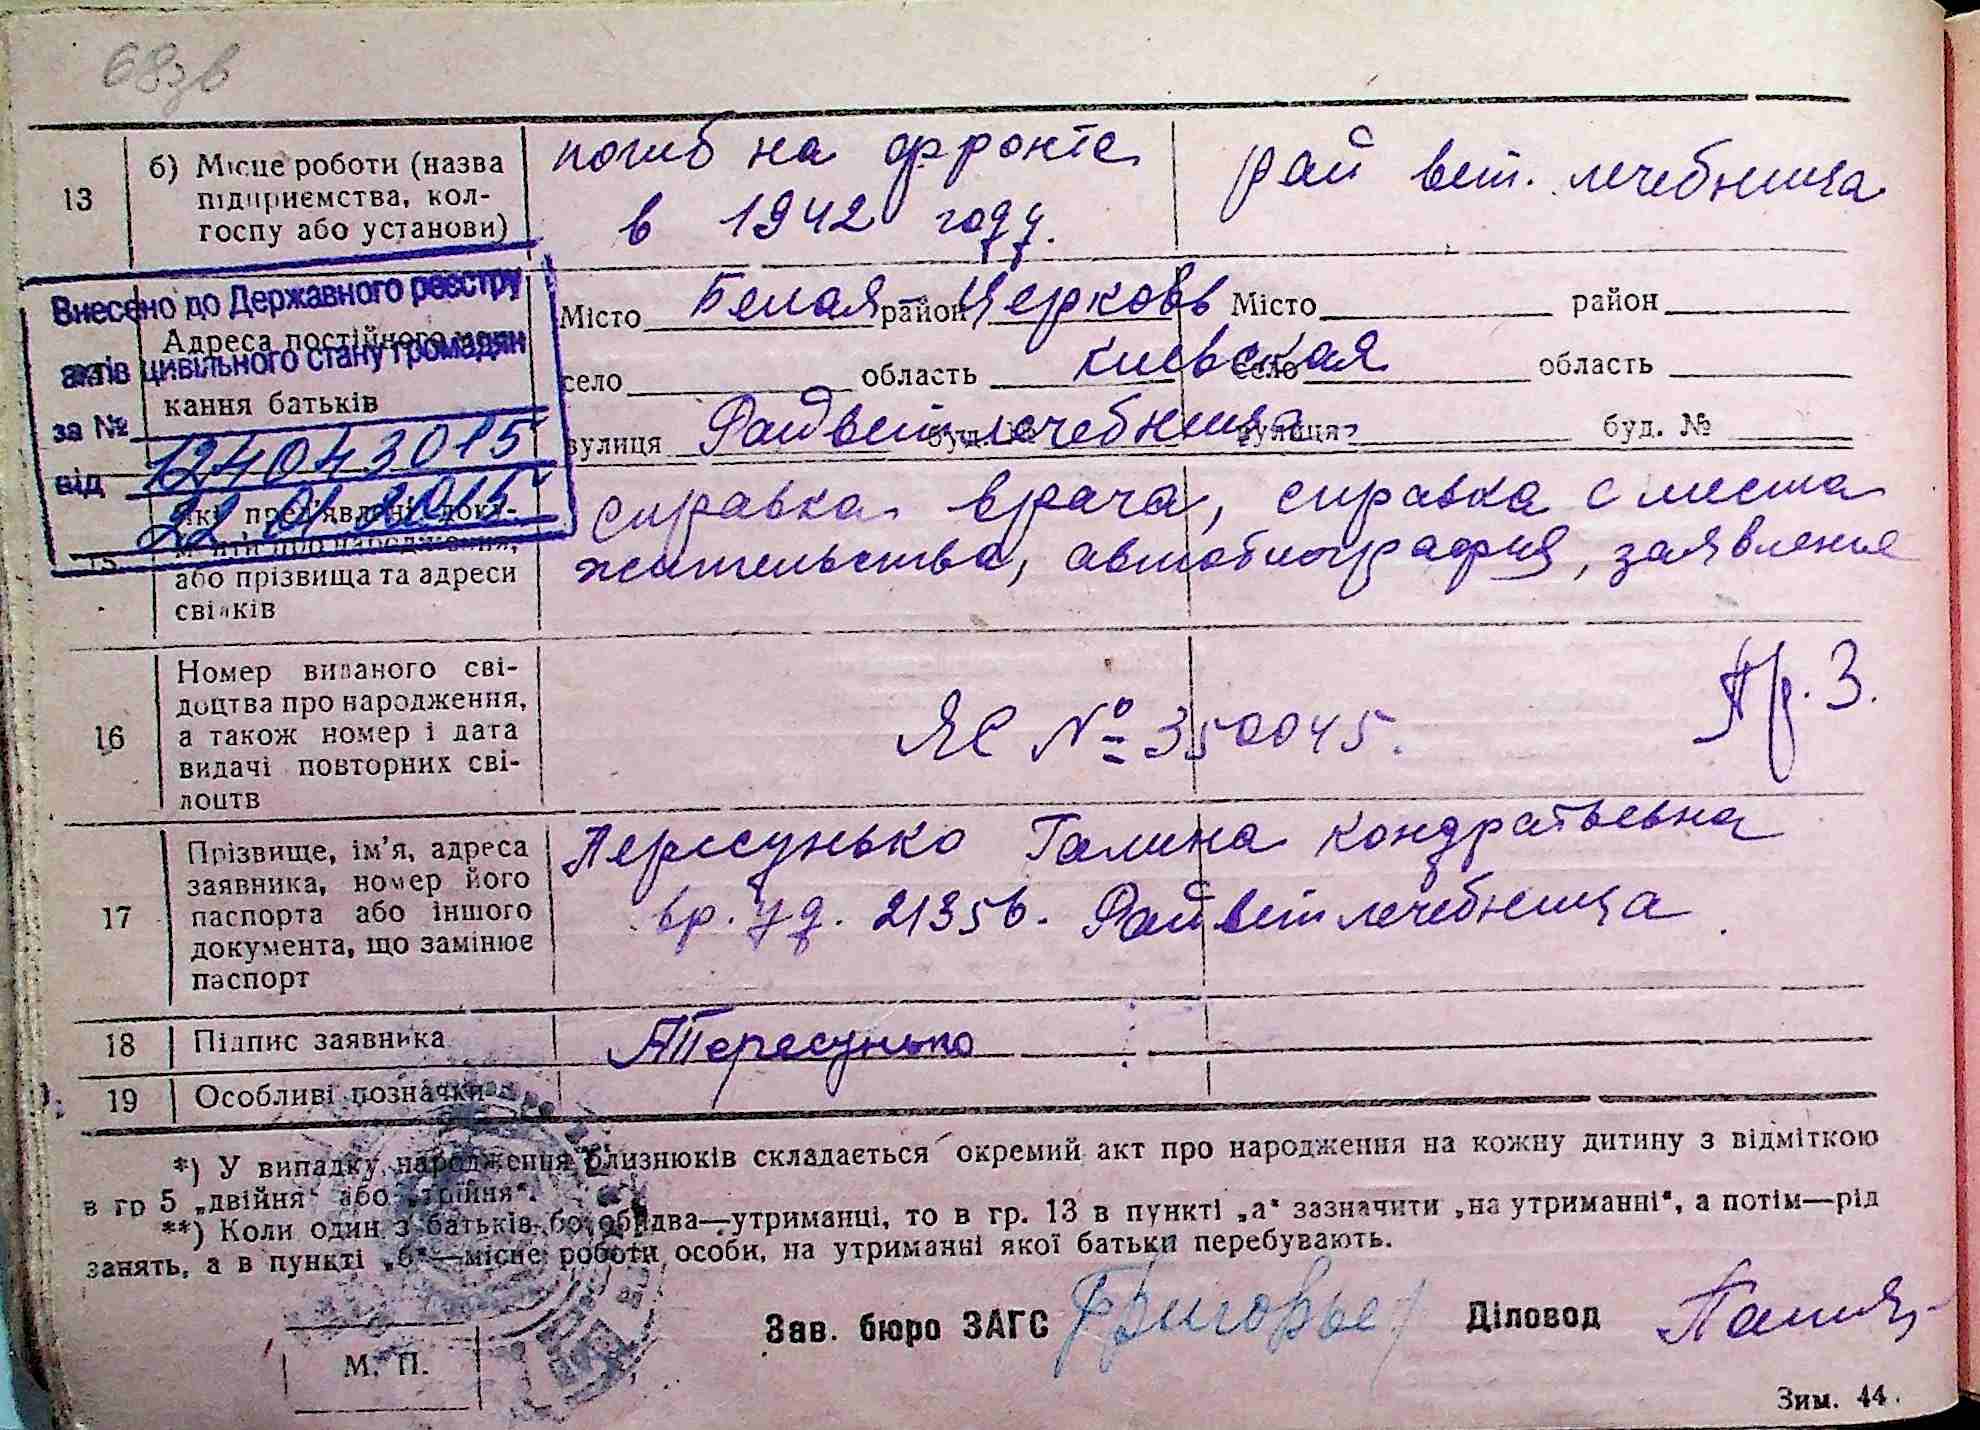 68зв
13
б) Місце роботи (назва підприємства, кол-госпу або установи)
погиб на фронте
в 1942 году.
рай вет. лечебница
Внесено до Державного реєстру
актів цивільного стану громадян
за № 124043015
від 22 01 2015
Адреса постійного
кання батьків
Місто Белая район Церковь Місто район
село область Киевская село область
вулиця Райветлечебница буд. № вулиця буд. №
15
які пред'явлені доку-
менти про народження,
або прізвища та адреси
свідків
справка врача, справка с места
жительства, автобиография, заявление
16
Номер виданого сві-
доцтва про народження,
а також номер і дата
видачі повторних сві-
доцтв
ЯС № 350045.
Пр. 3.
17
Прізвище, ім'я, адреса
заявника, номер його
паспорта або іншого
документа, що замінює
паспорт
Пересунько Галина Кондратьевна
вр. уд. 21356. Райветлечебница
18 Підпис заявника
Пересунько
19 Особливі позначки
*) У випадку народження близнюків складається окремий акт про народження на кожну дитину з відміткою
в гр 5 „двійня“ або „трійня“.
**) Коли один з батьків бо обидва—утриманці, то в гр. 13 в пункті „а“ зазначити „на утриманні“, а потім—рід
занять, а в пункті „б“—місце роботи особи, на утриманні якої батьки перебувають.
Зав. бюро ЗАГС Григорье Діловод
М. П.
Зим. 44.